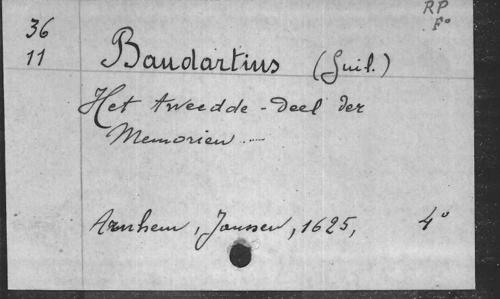 RP
F°
36
11
Baudartius (Guil.)
Het tweedde - deel der
Memorien ...
Arnhem, Janssen, 1625, 4°